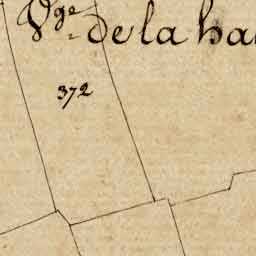 Vge. de la
372